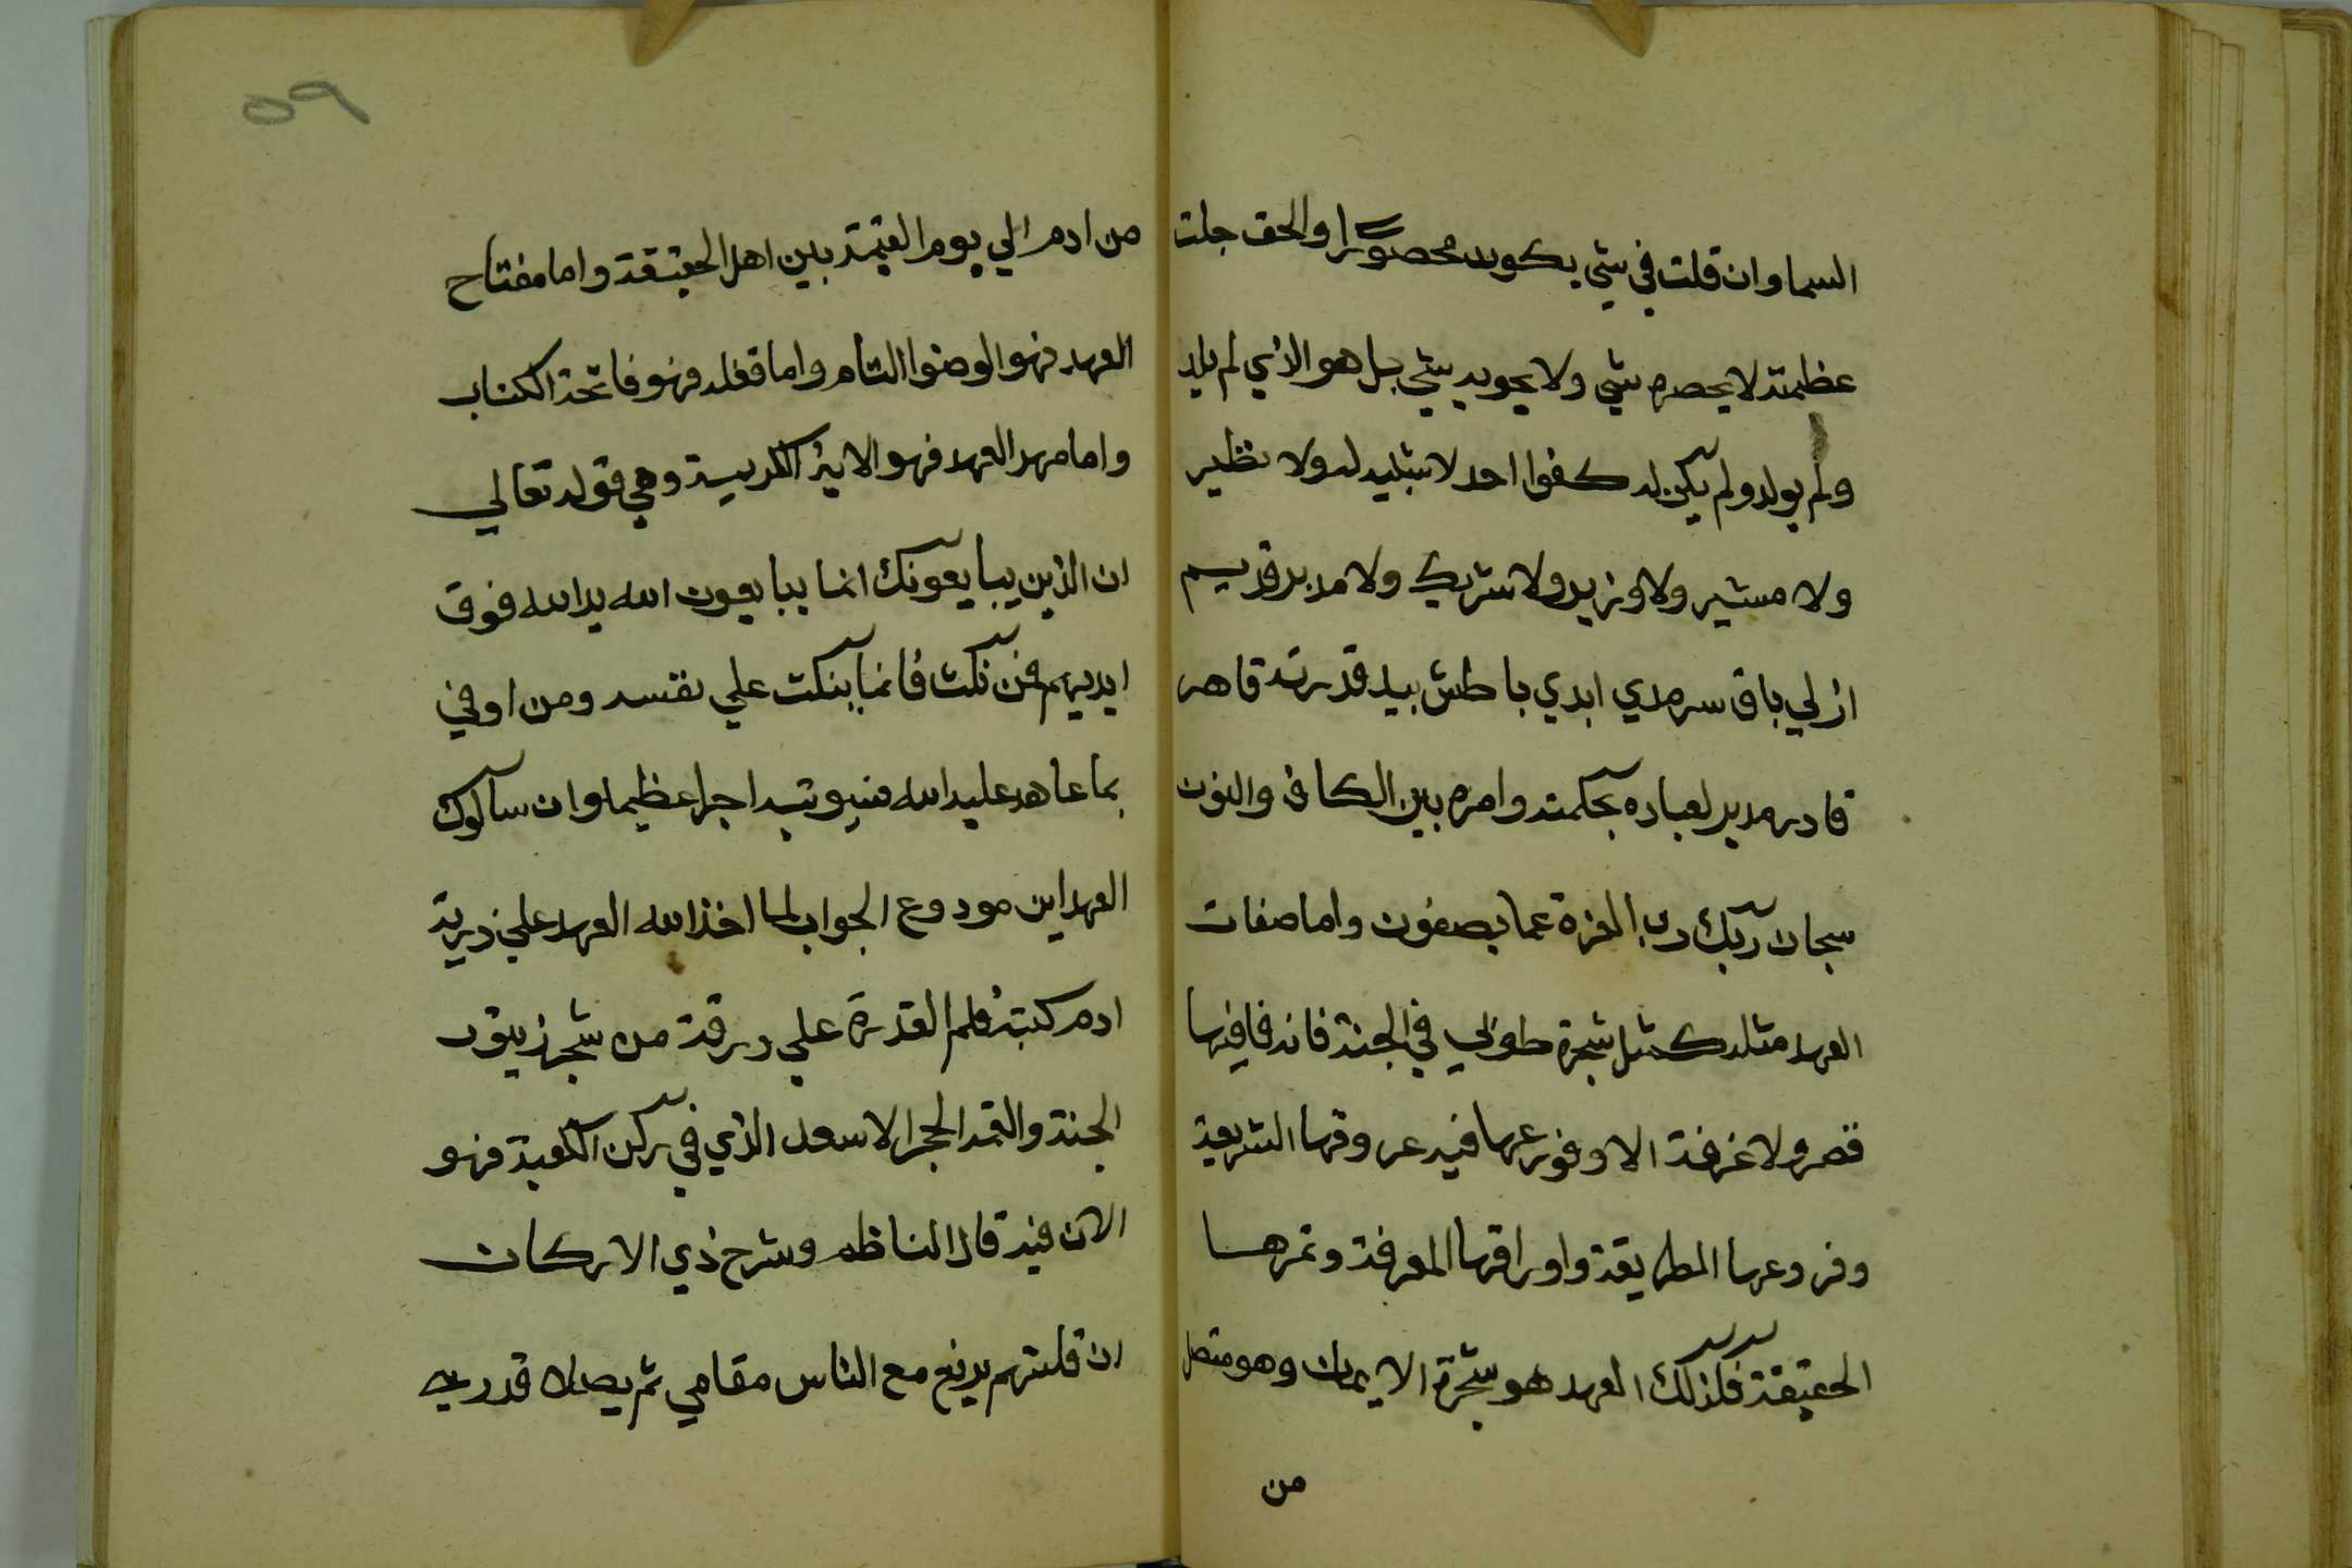 السما وان قلت في شي يكون محصورا والحق جلت
عظمته لا يحصره شي ولا يحويه شي بل هو الذي لم يلد
ولم يولد ولم يكن له كفوا احد لا شبيه له ولا نظير
ولا مشير ولا وزير ولا شريك ولا مدبر قديم
ازلي باق سرمدي ابدي باطش بيد قدرته قاهر
قادر مدبر لعباده بحكمته وامره بين الكاف والنون
سبحان ربك رب العزة عما يصفون واما صفات
العهد مثله كمثل شجرة طوبي في الجنة فانه فافيها
قصر ولا غرفة الا وفورعها فيه عروقها الشريعة
وفروعها الطريقة واوراقها المعرفة وثمرها
الحقيقة فلذلك العهد هو شجرة الايمان وهو متصل
من
٥٩
من ادم الي يوم القيمة بين اهل الحقيقة واما مفتاح
العهد فهو الوضوا التام واما قفله فهو فاتحة الكتاب
واما مهد العهد فهو الاية الكريمة وهي قوله تعالي
ان الذين يبايعونك انما يبايعون الله يد الله فوق
ايديهم فمن نكث فانما ينكث علي نفسه ومن اوفي
بما عاهد عليه الله فسيوتيه اجرا عظيما وان سالوك
العهد اين مودوع الجواب لما اخذ الله العهد علي ذرية
ادم كتبه قلم القدرة علي ورقة من شجر زيتون
الجنة والقمه الحجر الاسعد الذي في ركن الكعبة فهو
الان فيه قال الناظم وشرح ذي الاركان
ان قلتهم يرفع مع الناس مقامي ثم يصلا قدريه